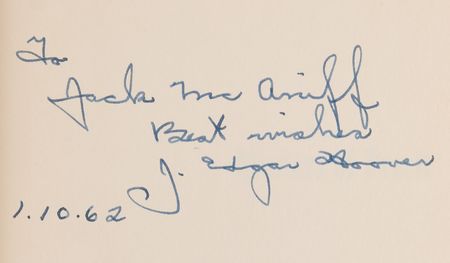 To
Jack Mc Aniff
Best wishes
J. Edgar Hoover
1.10.62